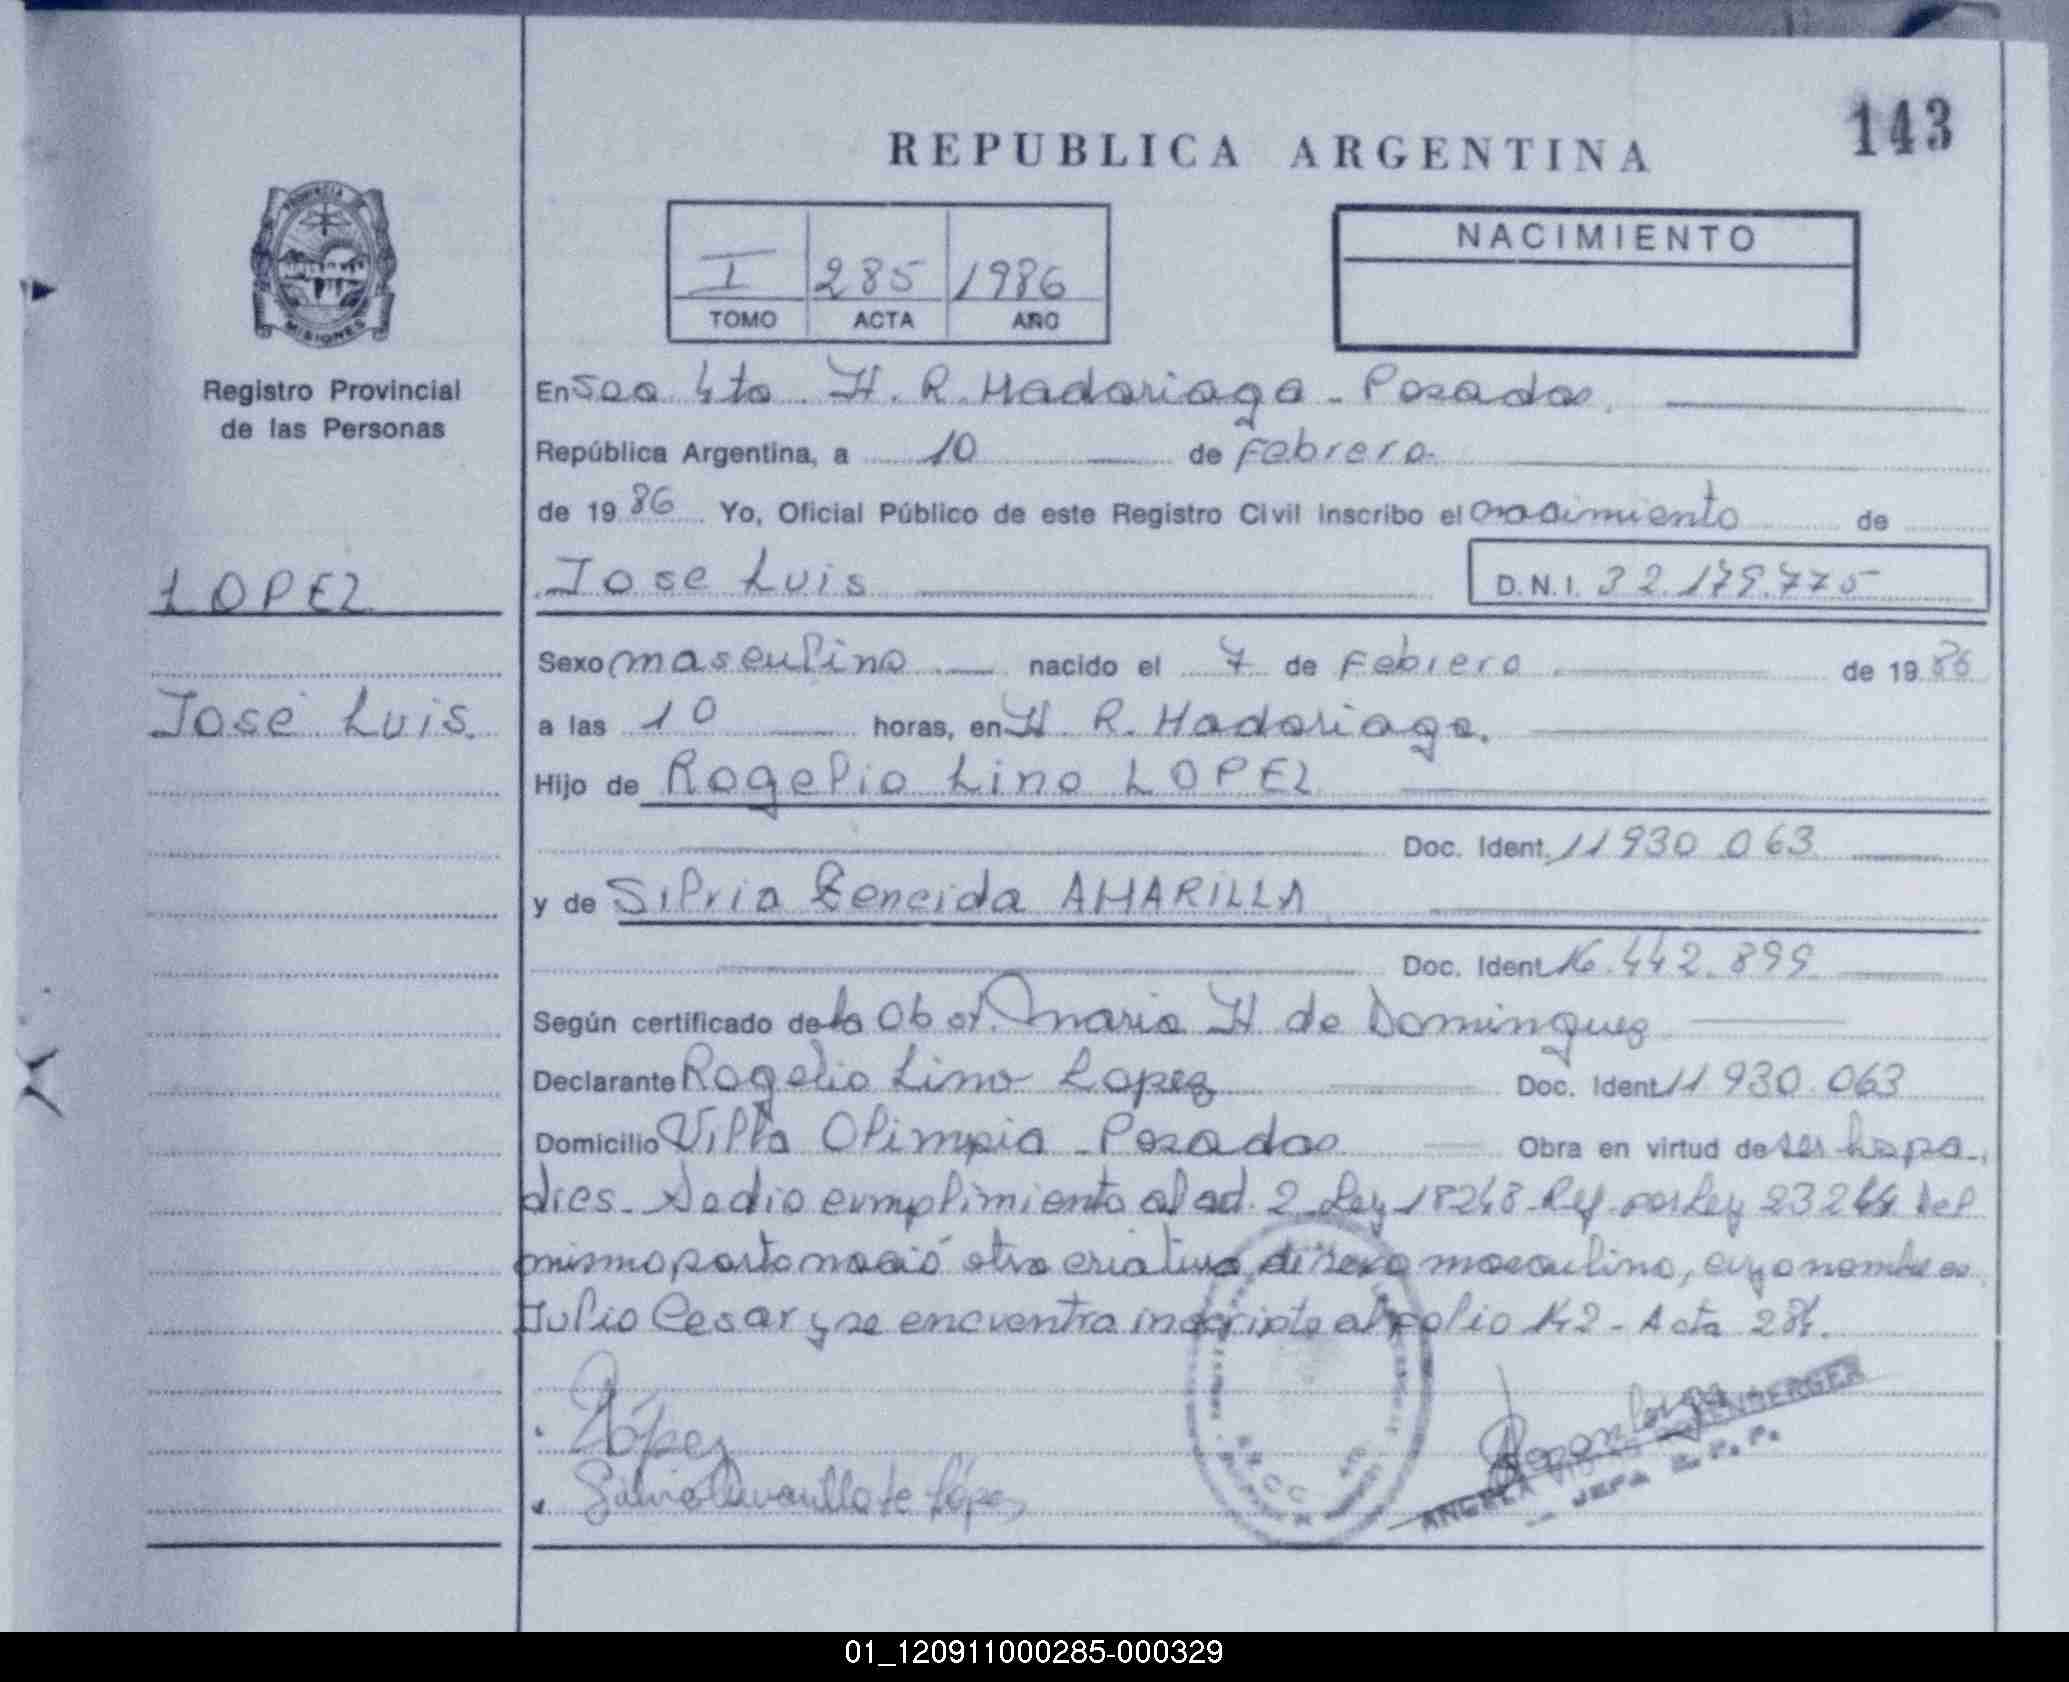 143
REPUBLICA ARGENTINA
PROVINCIA DE
MISIONES
I 285 1986
TOMO ACTA AÑO
NACIMIENTO
Registro Provincial
de las Personas
En Sec 4ta H. R. Madariaga - Posadas.
República Argentina, a 10 de Febrero
de 19 86 Yo, Oficial Público de este Registro Civil inscribo el nacimiento de
LOPEZ
Jose Luis
D.N.I. 32.179.775
Sexo masculino nacido el 7 de Febrero de 19 86
José Luis
a las 10 horas, en H. R. Madariaga.
Hijo de Rogelio Lino LOPEZ
Doc. Ident. 11 930 063
y de Silvia Zeneida AMARILLA
Doc. Ident 16.442.899
Según certificado de la Obst. Maria H de Dominguez
Declarante Rogelio Lino Lopez Doc. Ident 11 930.063
Domicilio Villa Olimpia - Posadas Obra en virtud de ser los pa-
dres. Se dio cumplimiento al art. 2 Ley 18248 Ref. por Ley 23264 Del
mismo parto nació otra criatura de sexo masculino, cuyo nombre es
Julio Cesar y se encuentra inscripto al folio 142 - Acta 284.
López
Silvia Amarilla de López
ANGELA
JEFA R. P. P.
01_120911000285-000329